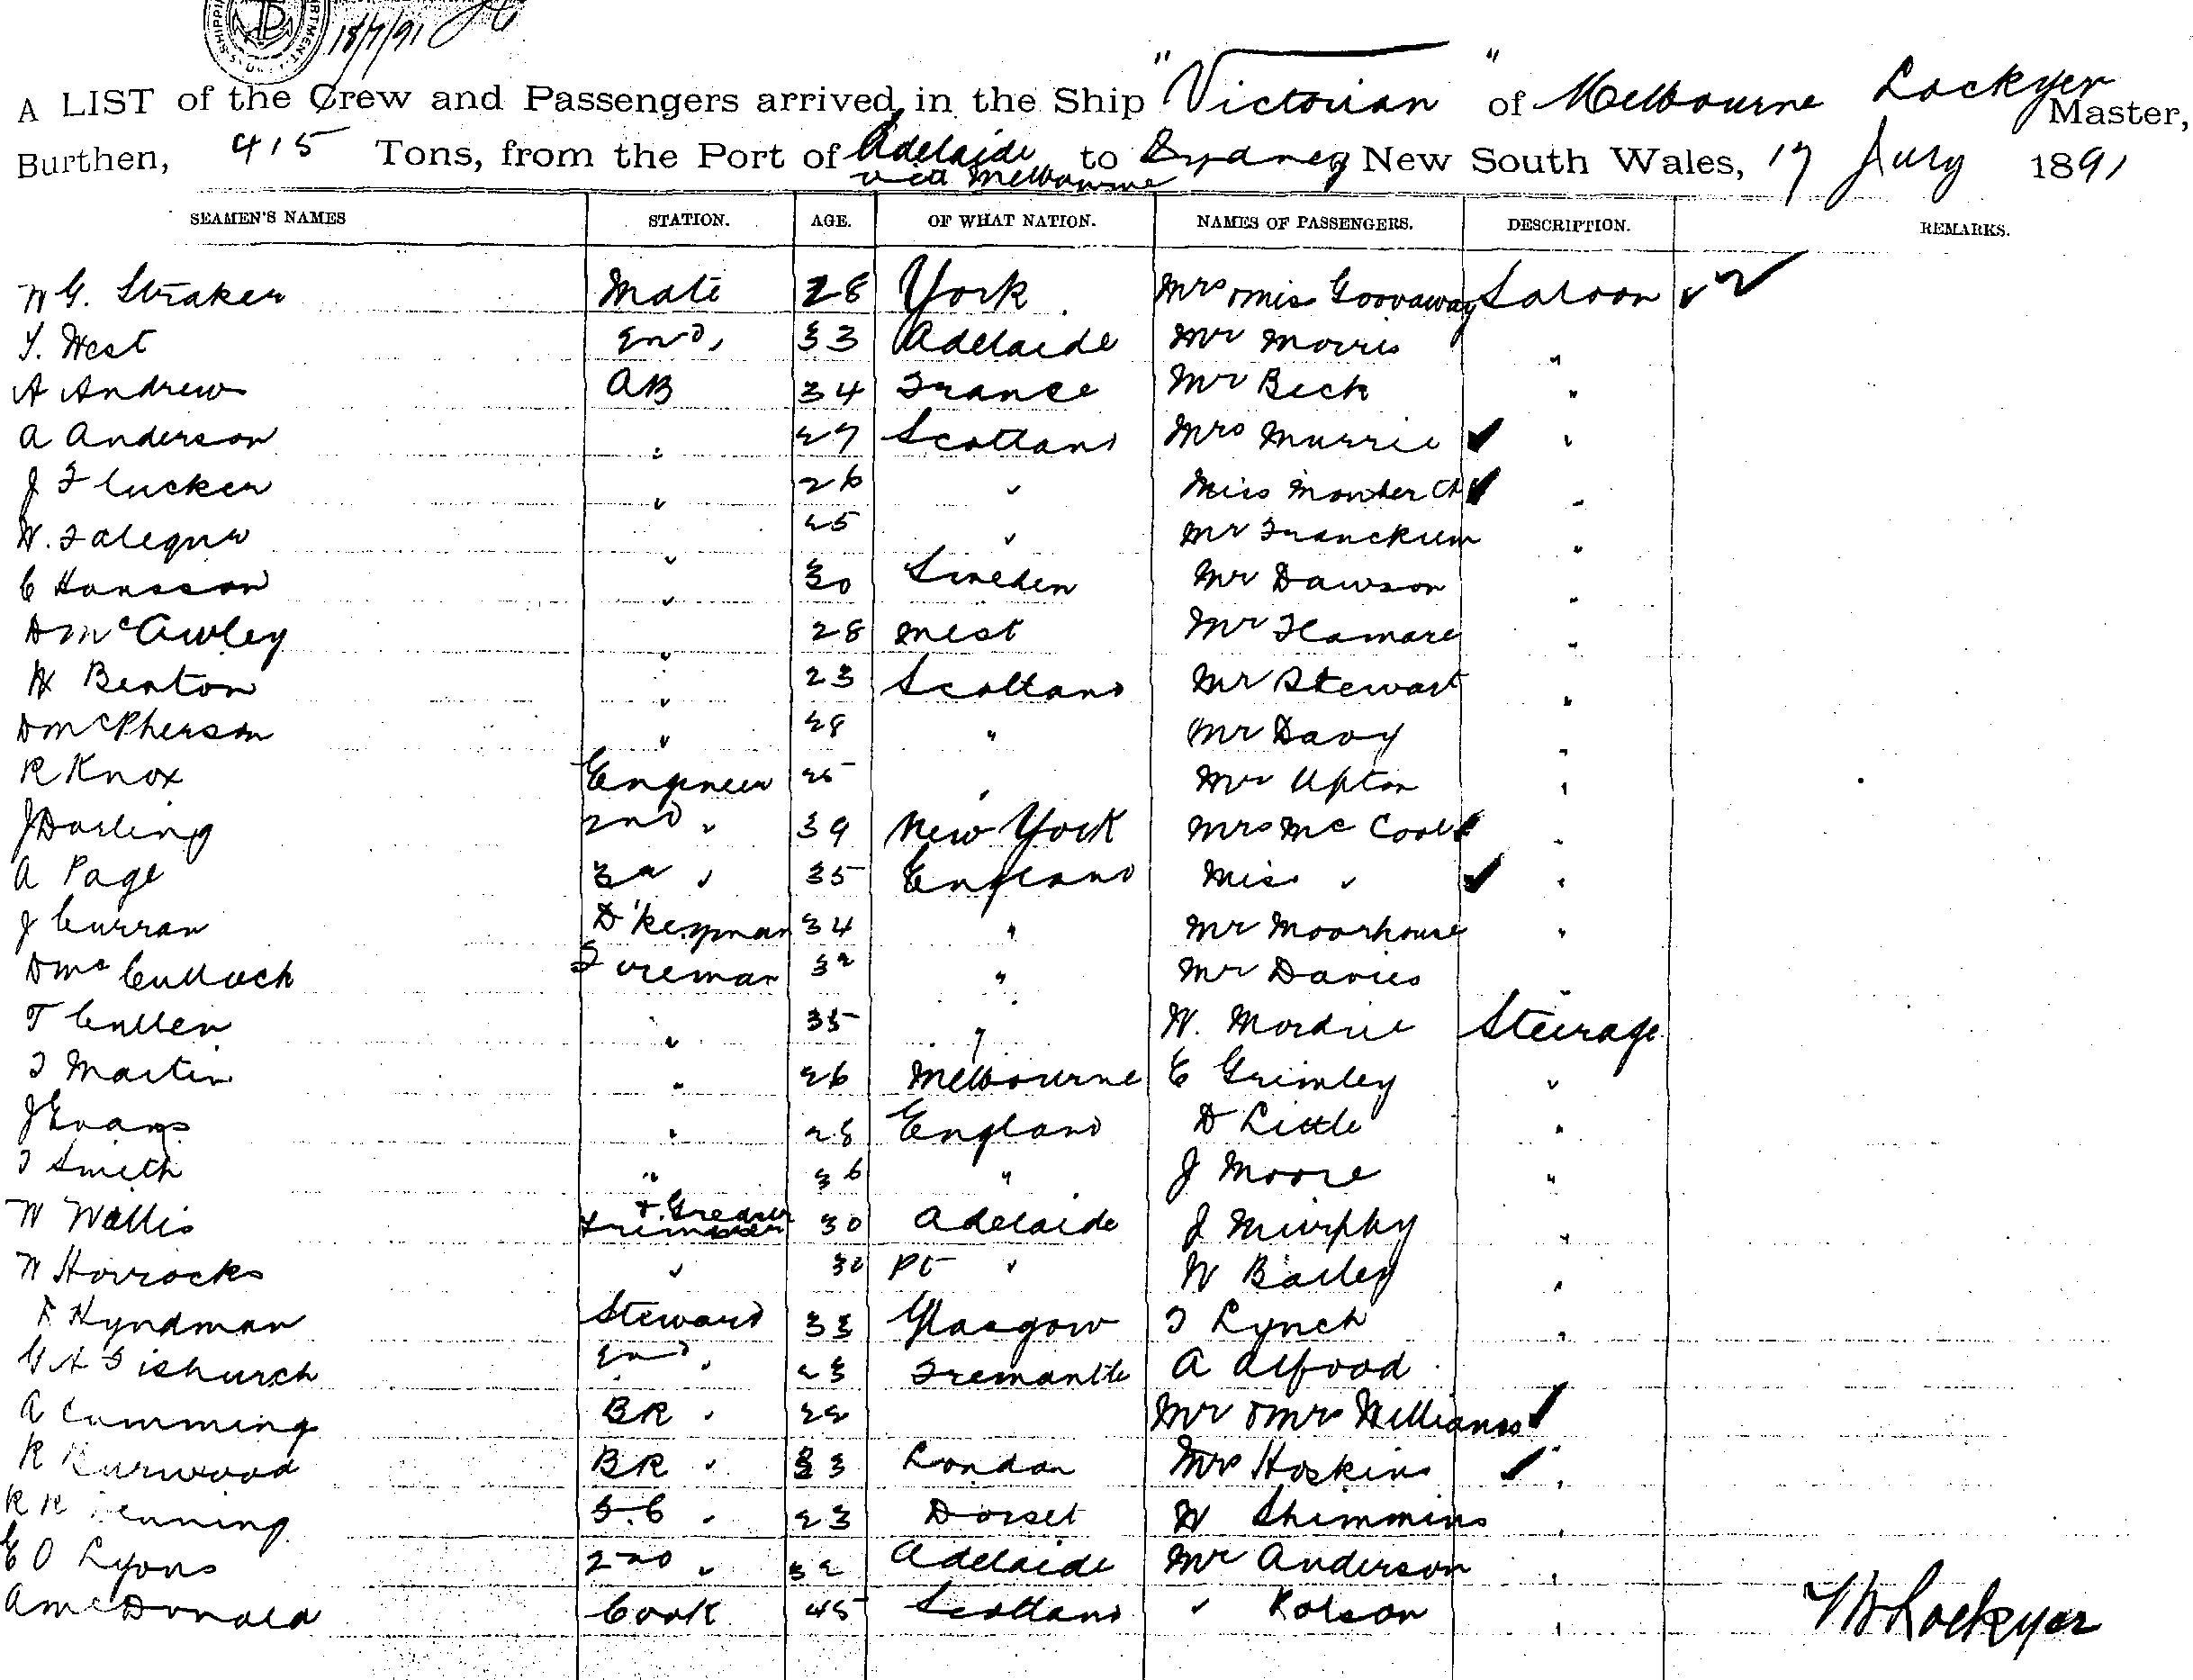 18/7/91
A LIST of the Crew and Passengers arrived in the Ship "Victorian" of Melbourne Lockyer Master,
Burthen, 415 Tons, from the Port of Adelaide to Sydney New South Wales, 17 July 1891
via Melbourne
SEAMEN'S NAMES STATION. AGE. OF WHAT NATION. NAMES OF PASSENGERS. DESCRIPTION. REMARKS.
W G. Straker Mate 28 York Mrs & Miss Saloon
T. West 2nd, 33 Adelaide Mr Morris "
A Andrew AB 34 France Mr Beck "
A Anderson " 27 Scotland Mrs Murrie "
J Flucker " 26 " Miss "
W. " 25 " Mr "
C Hansson " 30 Sweden Mr Dawson "
D McAwley " 28 West Mr "
H Benton " 23 Scotland Mr Stewart "
D McPherson " 28 " Mr Davy "
R Knox Engineer 25 " Mr Upton "
J Darling 2nd " 39 New York Mrs Mc "
A Page 3rd " 35 England Miss " "
J Curran D'keyman 34 " Mr Moorhouse "
D McCulloch Fireman 32 " Mr Davies "
T Cullen " 35 " W. Steerage
T Martin " 26 Melbourne E Grimley "
J Evans " 28 England D Little "
T Smith " 36 " J Moore "
W Wallis Trimmer & Greaser 30 Adelaide J Murphy "
W Horrocks " 30 Pt " W Bailey "
F Hyndman Steward 33 Glasgow T Lynch "
G A Fishurch 2nd " 23 Fremantle A Alfood
A Cumming BR " 22 Mr & Mrs Williams
R Burwood BR " 23 London Mrs Hoskins "
R " 23 Dorset W Shimmins "
E O Lyons 2nd " 32 Adelaide Mr Anderson "
A McDonald Cook 45 Scotland " Rolson "
Lockyer